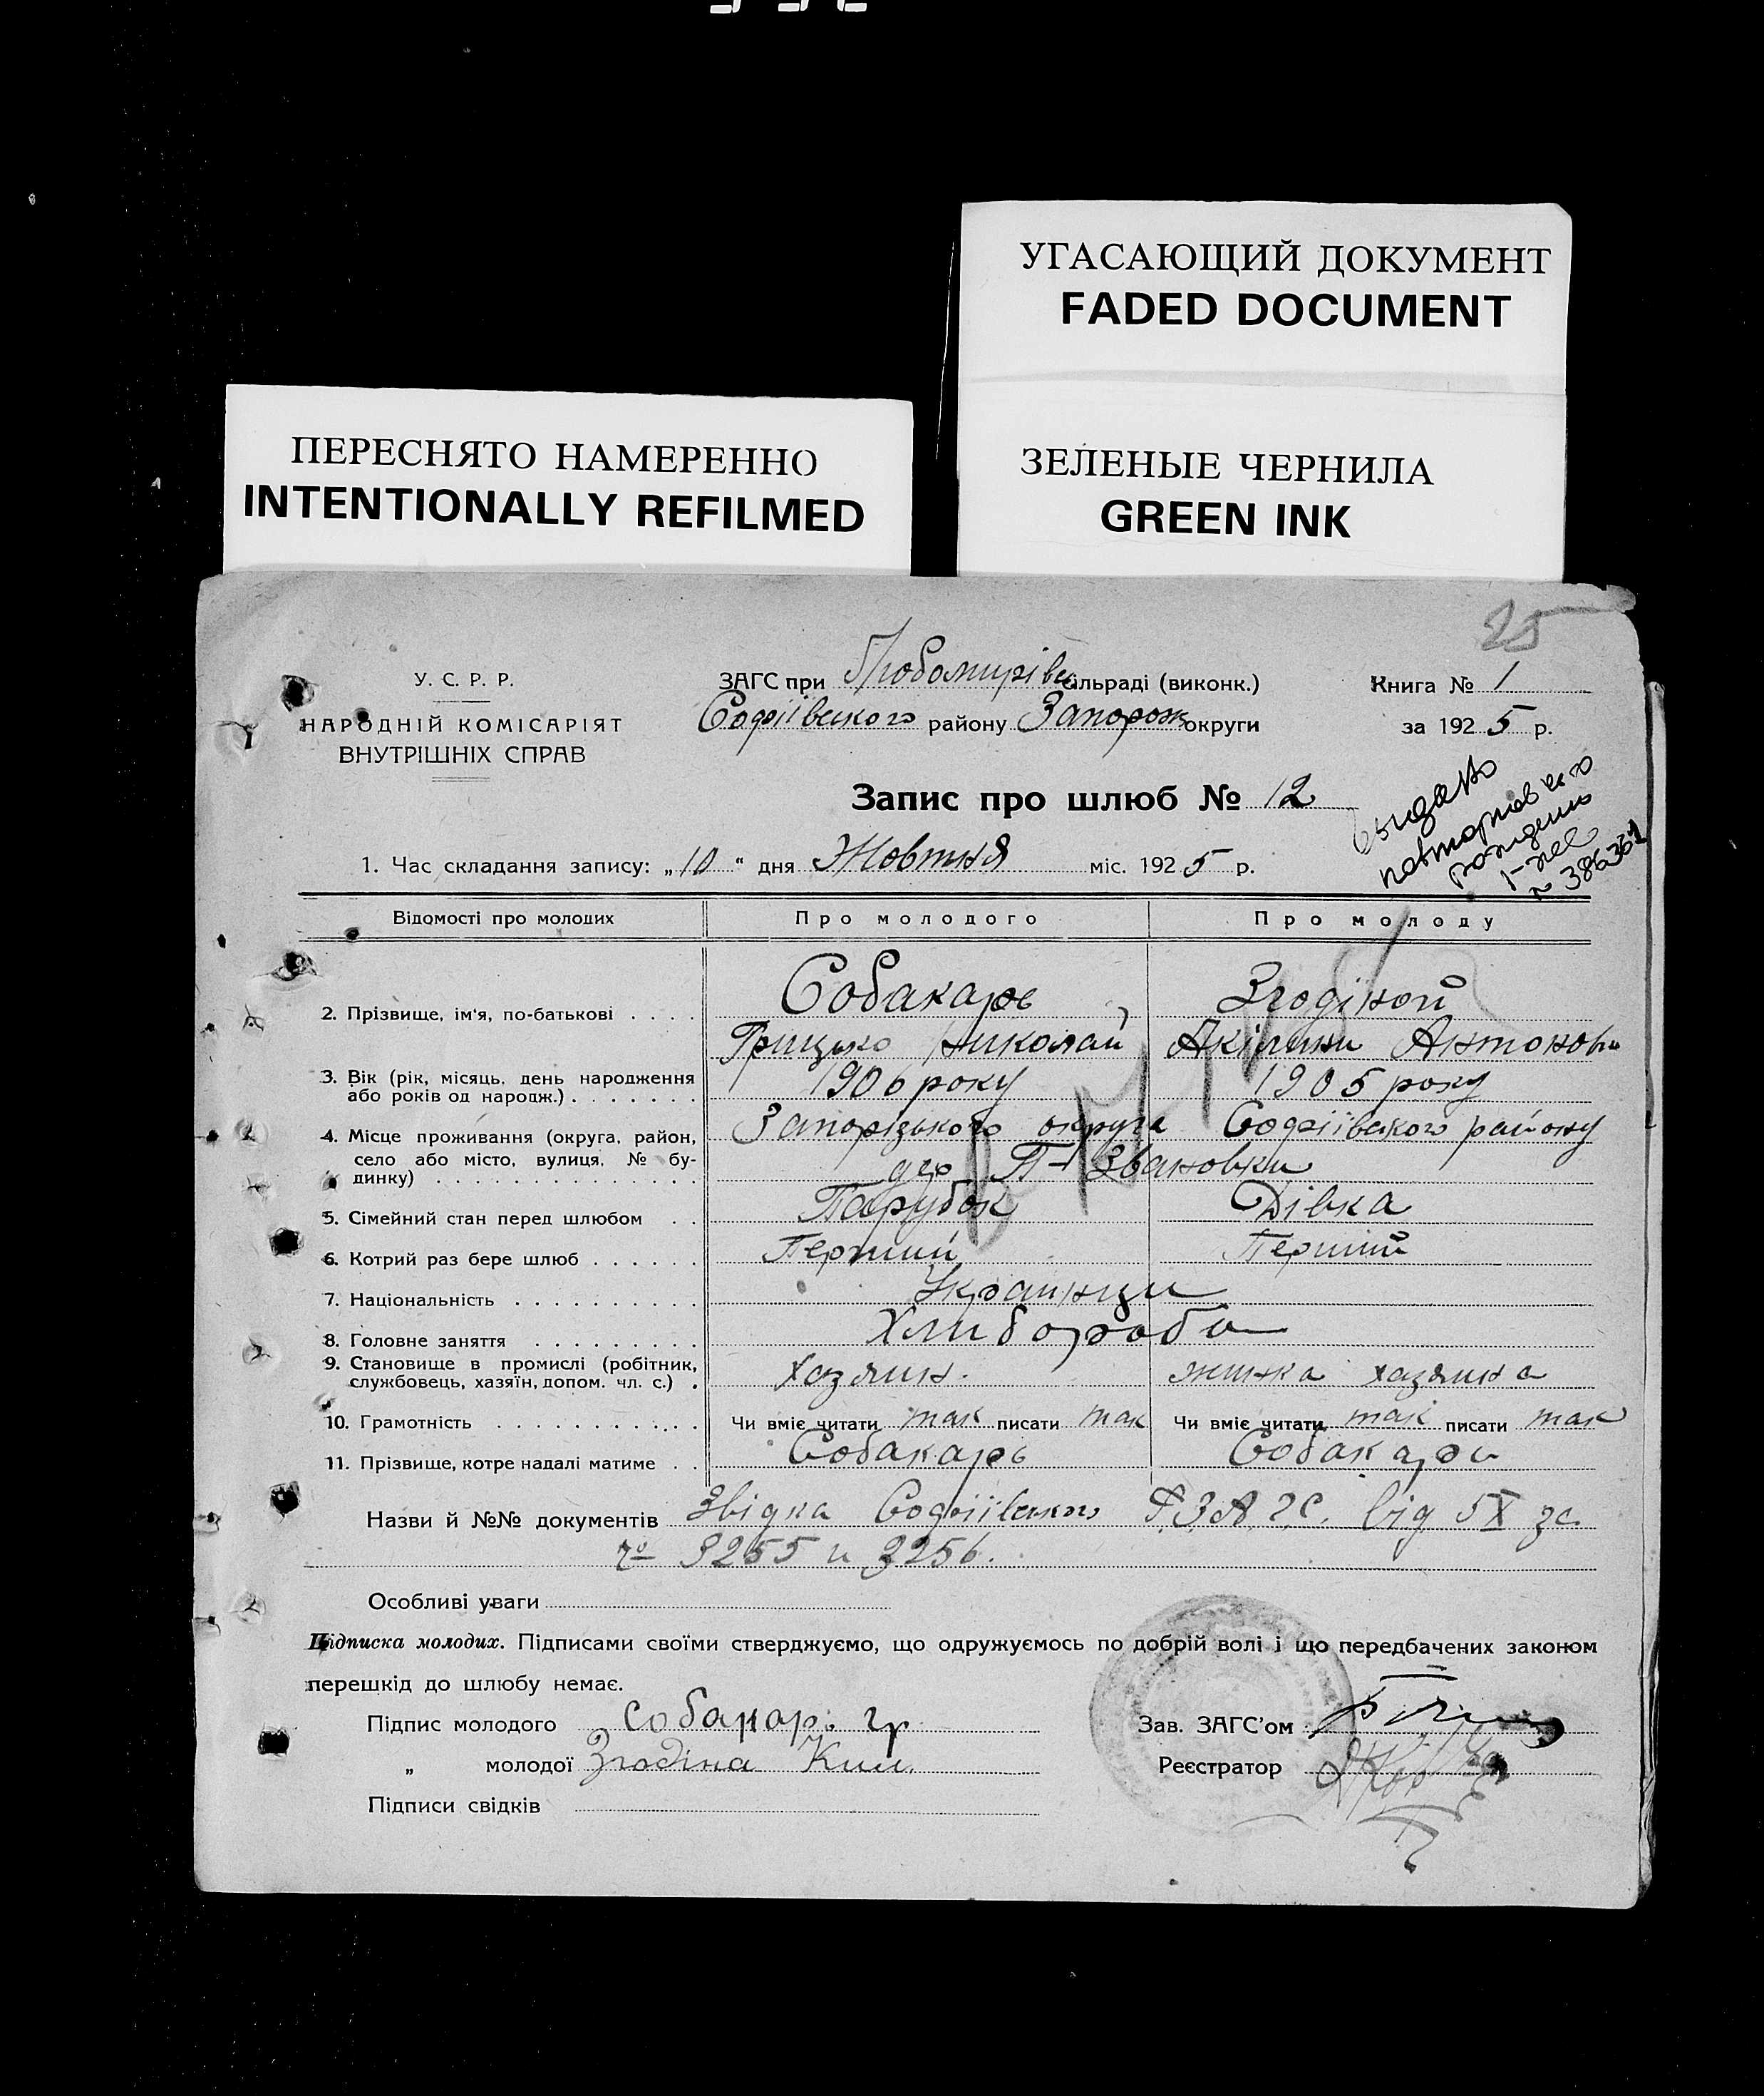 УГАСАЮЩИЙ ДОКУМЕНТ
FADED DOCUMENT
ПЕРЕСНЯТО НАМЕРЕННО
INTENTIONALLY REFILMED
ЗЕЛЕНЫЕ ЧЕРНИЛА
GREEN INK
25
У. С. Р. Р.
НАРОДНІЙ КОМІСАРІЯТ
ВНУТРІШНІХ СПРАВ
ЗАГС при Любомирівс сільраді (виконк.)
Софіівського району Запорож округи
Книга № 1
за 1925 р.
Запис про шлюб № 12
выдано
повторное
1. Час складання запису: „10“ дня Жовтня міс. 1925 р.
№ 386361
Відомості про молодих Про молодого Про молоду
2. Прізвище, ім'я, по-батькові . . . . Собакарь Згодіной
Грицько Николай Акілини Антонови
3. Вік (рік, місяць, день народження або років од народж.) . . . . . . . 1906 року 1905 року
4. Місце проживання (округа, район, село або місто, вулиця, № будинку) . . . . . . . . . . . . . . Запорізького округа Софіівського району
П-Звановки
5. Сімейний стан перед шлюбом . . Парубок Дівка
6. Котрий раз бере шлюб . . . . . . Перший Перший
7. Національність . . . . . . . . . . Украинци
8. Головне заняття . . . . . . . . . Хлибороби
9. Становище в промислі (робітник, службовець, хазяїн, допом. чл. с.) . хазяин. жинка хазяина
10. Грамотність . . . . . . . . . . . . Чи вміє читати так писати так Чи вміє читати так писати так
11. Прізвище, котре надалі матиме . . Собакарь Собакарь
Назви й №№ документів Звідка Софіівського Р.З.А.Г.С. від 5 X за
№ 3255 и 3256.
Особливі уваги
Підписка молодих. Підписами своїми стверджуємо, що одружуємось по добрій волі і що передбачених законом
перешкід до шлюбу немає.
Підпис молодого Собакар. гр
„ молодої Згодіна Кил.
Зав. ЗАГС'ом
Реєстратор
Підписи свідків